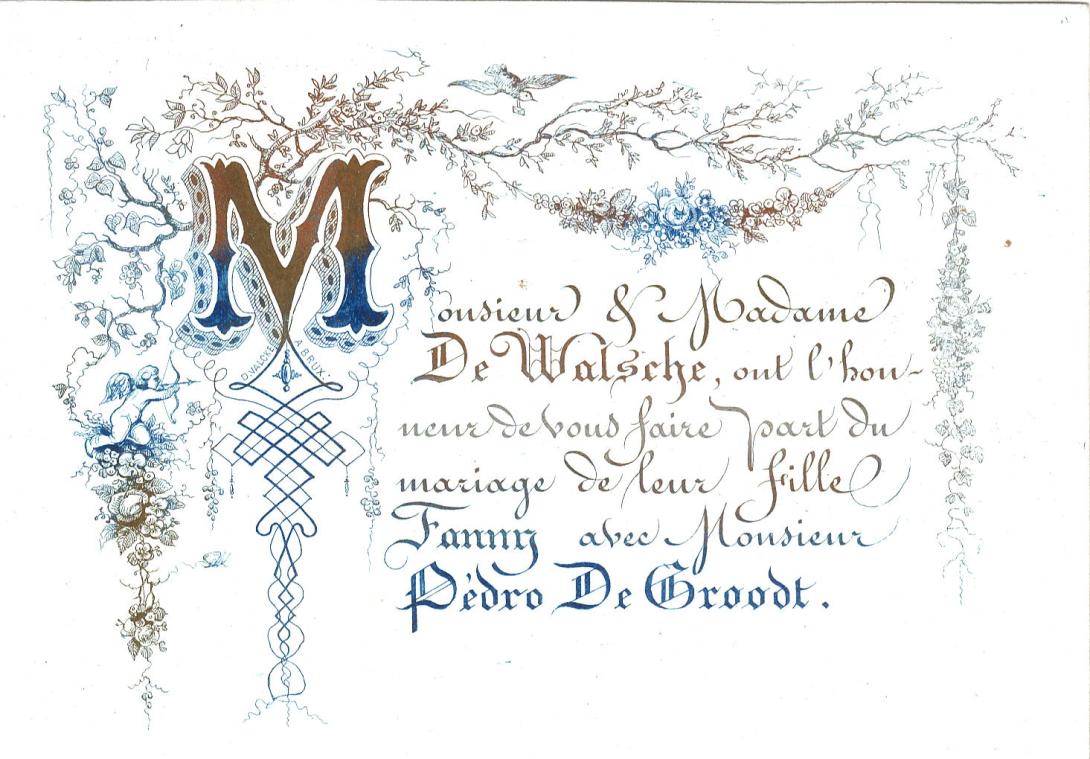 Monsieur & Madame
De Walsche, ont l'hon-
neur de vous faire part du
mariage de leur fille
Fanny avec Monsieur
Pédro De Groodt.
D. VALCKE A BRUX: